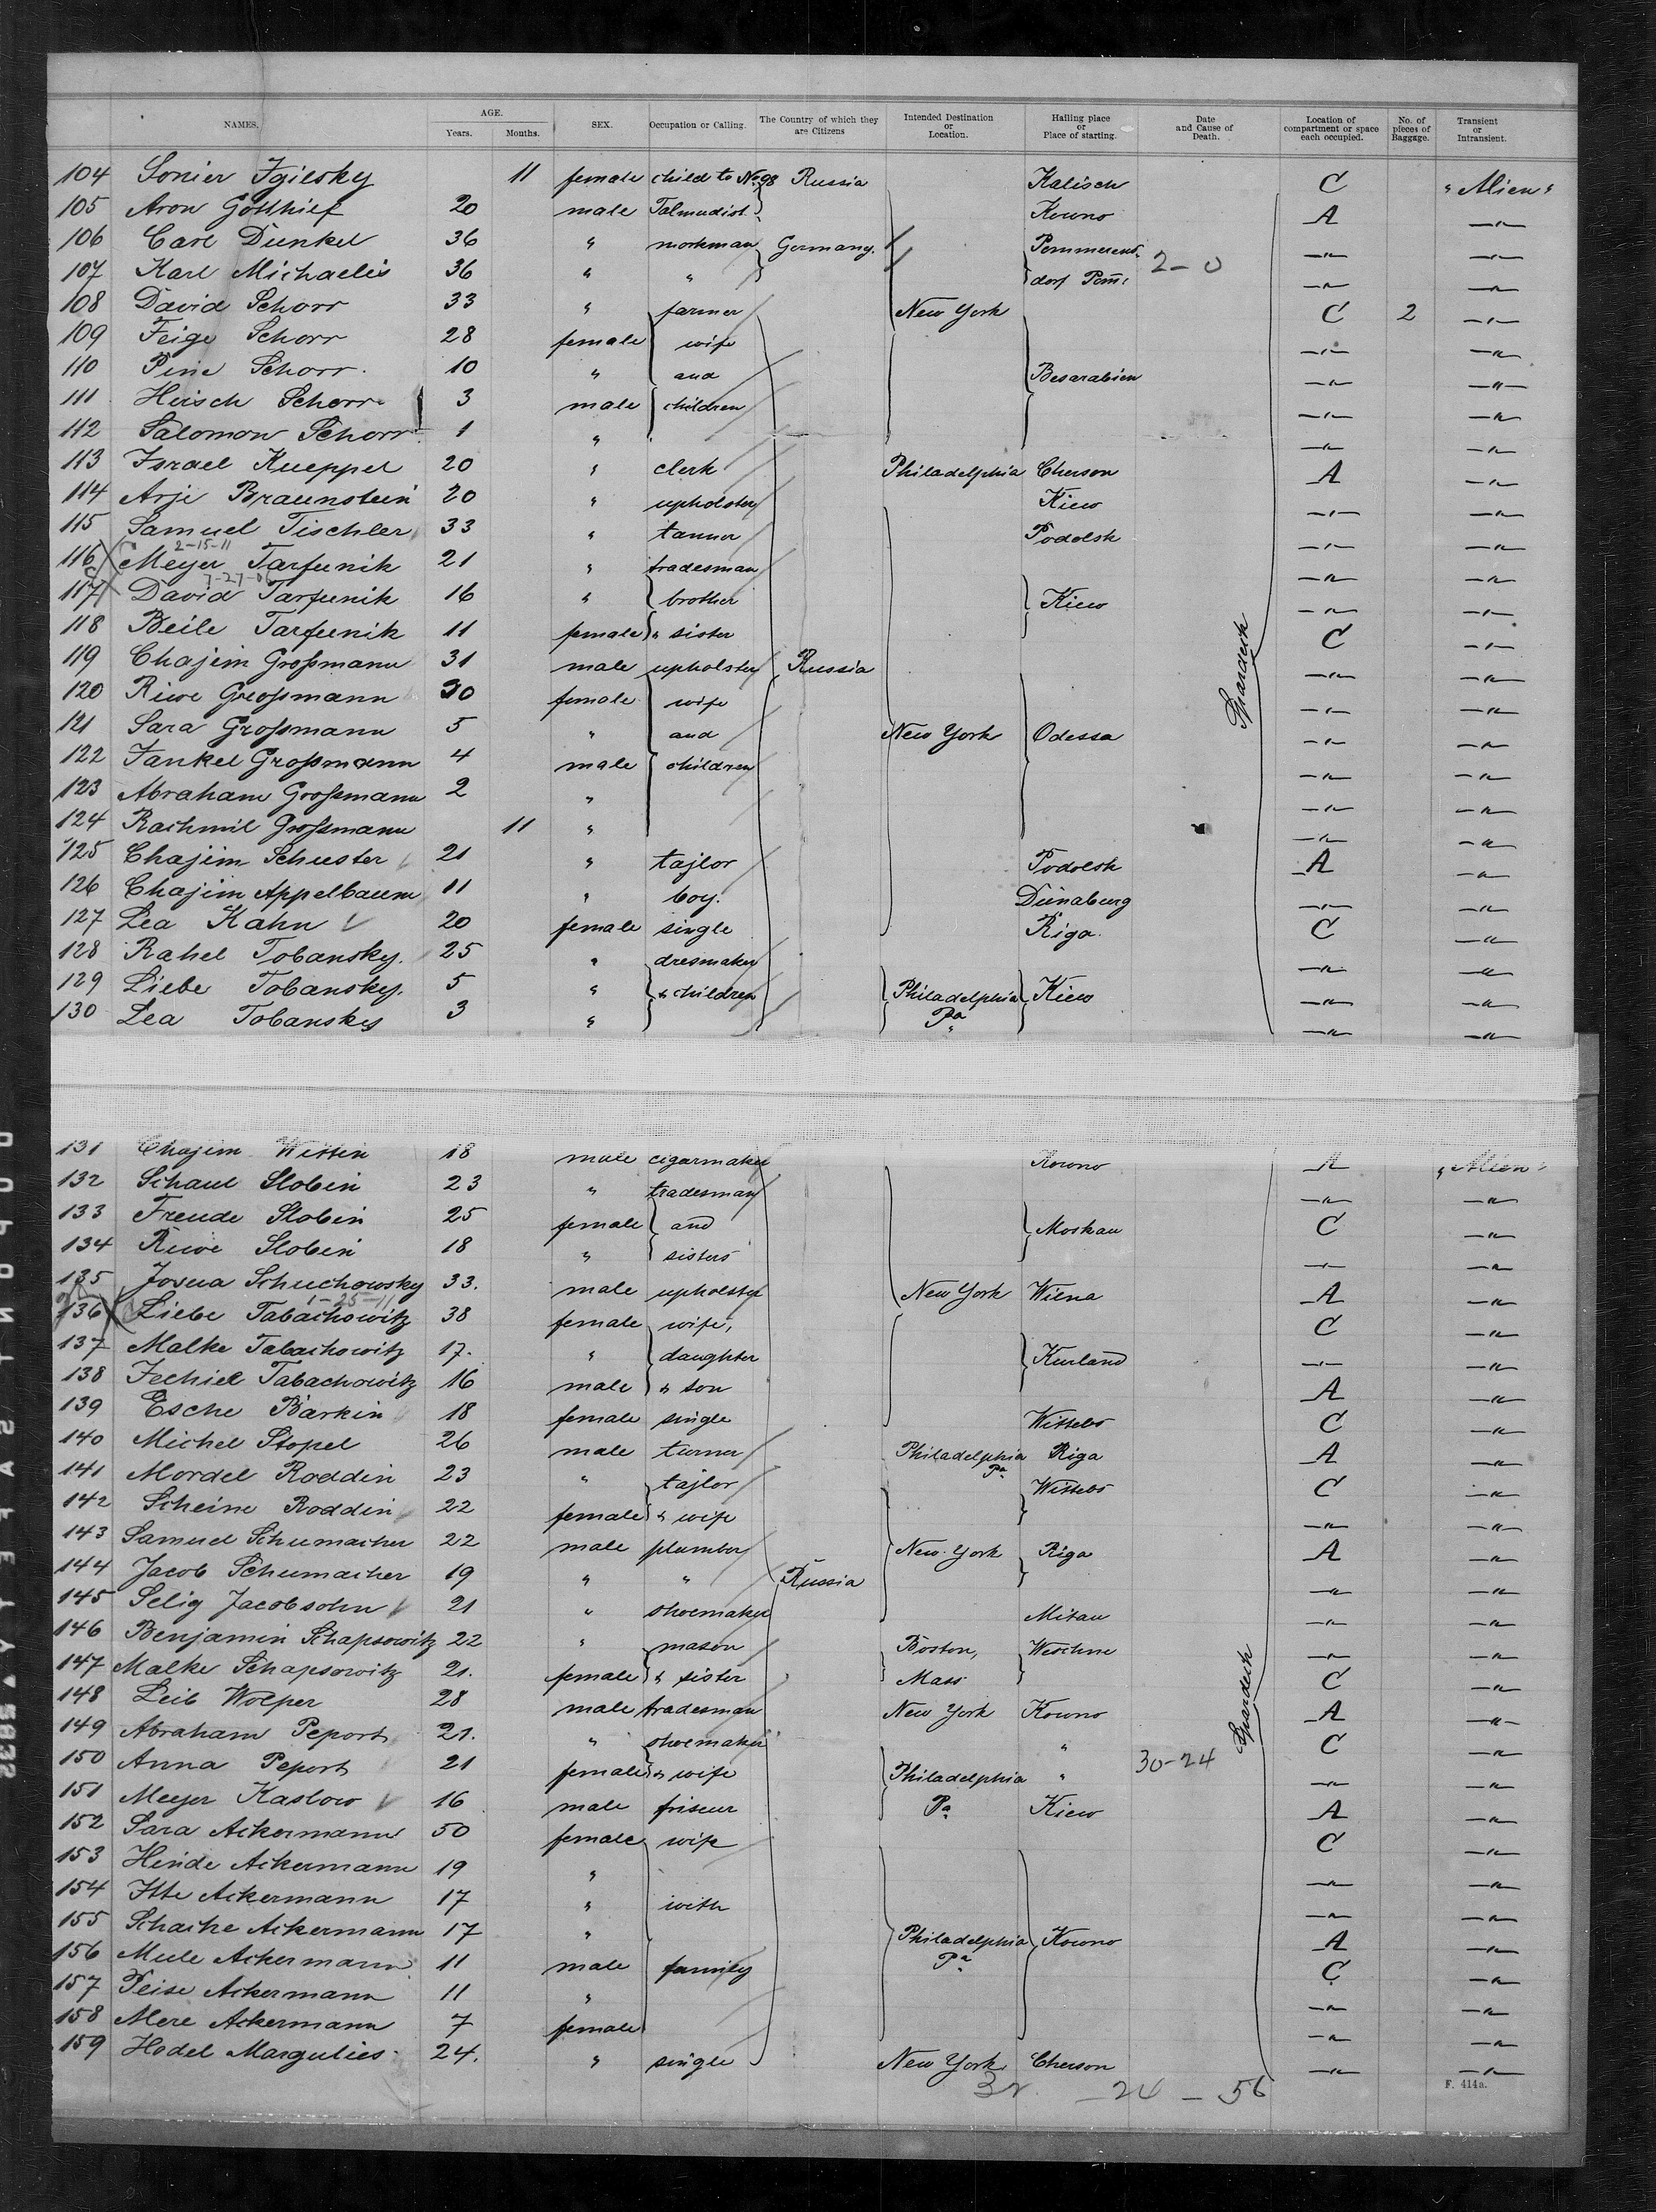 NAMES. AGE. Years. Months. SEX. Occupation or Calling. The Country of which they are Citizens Intended Destination or Location. Hailing place or Place of starting. Date and Cause of Death. Location of compartment or space each occupied. No. of pieces of Baggage. Transient or Intransient.
104 Sonier Igilsky 11 female child to No 98 Russia Kalisch C "Alien"
105 Aron Gotthief 20 male Talmudist Kowno A —"—
106 Carl Dunkel 36 " workman Germany. Pommerens- —"— —"—
107 Karl Michaelis 36 " " dorf Pom: 2-0 —"— —"—
108 David Schorr 33 " farmer New York C 2 —"—
109 Feige Schorr 28 female wife —"— —"—
110 Pine Schorr. 10 " and Besarabien —"— —"—
111 Hersch Schorr 3 male children —"— —"—
112 Salomon Schorr 1 " —"— —"—
113 Israel Kueppel 20 " clerk Philadelphia Cherson A —"—
114 Arje Braunstein 20 " upholster Kiew —"— —"—
115 Samuel Tischler 33 " tanner Podolsk —"— —"—
2-15-11
116 Meyer Tarfunik 21 " tradesman —"— —"—
7-27-06
117 David Tarfunik 16 " brother Kiew —"— —"—
118 Beile Tarfunik 11 female " sister C —"—
119 Chajim Großmann 31 male upholster Russia —"— —"—
120 Riwe Großmann 30 female wife —"— —"—
121 Sara Großmann 5 " and New York Odessa —"— —"—
122 Jankel Großmann 4 male children —"— —"—
123 Abraham Großmann 2 " —"— —"—
124 Rachmil Großmann 11 " —"— —"—
125 Chajim Schuster 21 " tajlor Podolsk A —"—
126 Chajim Appelbaum 11 " boy. Dünaburg —"— —"—
127 Lea Kahn 20 female single Riga. C —"—
128 Rahel Tobansky. 25 " dresmaker —"— —"—
129 Liebe Tobansky. 5 " & children Philadelphia Kiew —"— —"—
130 Lea Tobansky 3 " Pa —"— —"—
131 Chajim Wistin 18 male cigarmaker Kowno A "Alien"
132 Schaul Slobin 23 " tradesman —"— —"—
133 Freude Slobin 25 female and Moskau C —"—
134 Riwe Slobin 18 " sisters —"— —"—
135 Josua Schuchowsky 33. male upholster New York Wilna A —"—
1-25-11
136 Liebe Tabachowitz 38 female wife, C —"—
137 Malke Tabachowitz 17. " daughter Kurland —"— —"—
138 Jechiel Tabachowitz 16 male " son A —"—
139 Esche Barkin 18 female single Wittebs C —"—
140 Michel Stopel 26 male turner Philadelphia Pa Riga A —"—
141 Mordel Roddin 23 " tajlor Wittebs C —"—
142 Scheine Roddin 22 female " wife —"— —"—
143 Samuel Schumacher 22 male plumber New York Riga A —"—
144 Jacob Schumacher 19 " " Russia —"— —"—
145 Selig Jacobsohn 21 " shoemaker Mitau —"— —"—
146 Benjamin Schapsowitz 22 " mason Boston, Weschne —"— —"—
147 Malke Schapsowitz 21. female " sister Mass C —"—
148 Leib Wolper 28 male tradesman New York Kowno A —"—
149 Abraham Peport 21. " shoemaker " C —"—
150 Anna Peport 21 female " wife Philadelphia " 30-24 —"— —"—
151 Meyer Kaslow 16 male friseur Pa Kiew A —"—
152 Sara Ackermann 50 female wife C —"—
153 Hinde Ackermann 19 " —"— —"—
154 Itte Ackermann 17 " with —"— —"—
155 Schache Ackermann 17 " Philadelphia Kowno A —"—
156 Mule Ackermann 11 male family Pa C —"—
157 Peise Ackermann 11 " —"— —"—
158 Mere Ackermann 7 female —"— —"—
159 Hodel Margulies 24. " single New York Cherson —"— —"—
32 - 24 - 56
F. 414a.